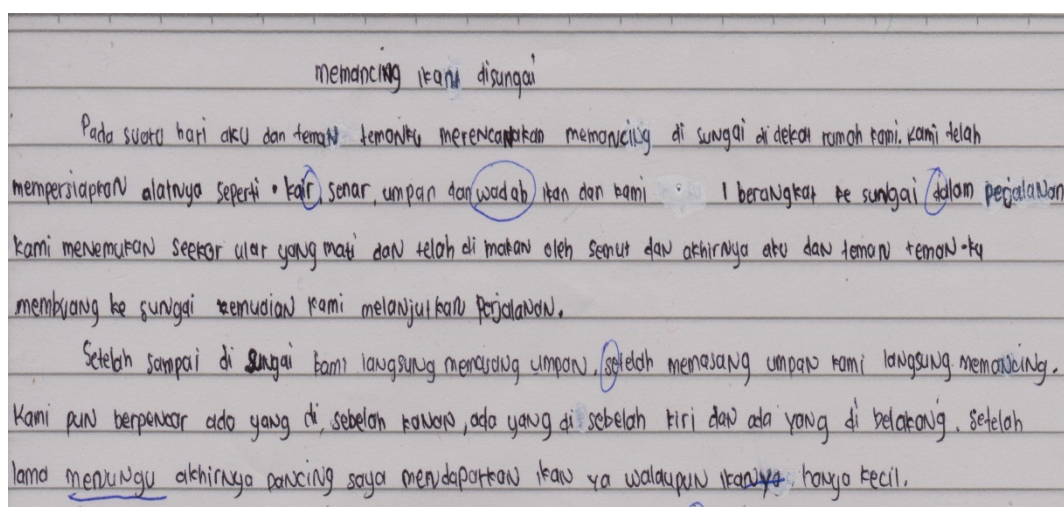 memancing ikan disungai
Pada suatu hari aku dan teman temanku merencanakan memancing di sungai di dekat rumah kami. kami telah
mempersiapkan alatnya seperti • kair, senar, umpan dan wadah ikan dan kami berangkat ke sungai dalam perjalanan
kami menemukan seekor ular yang mati dan telah di makan oleh semut dan akhirnya aku dan teman teman-ku
membuang ke sungai kemudian kami melanjutkan perjalanan.
Setelah sampai di sungai kami langsung memasang umpan, setelah memasang umpan kami langsung memancing.
Kami pun berpencar ada yang di, sebelah kanan, ada yang di sebelah kiri dan ada yang di belakang. Setelah
lama menungu akhirnya pancing saya mendapatkan ikan ya walaupun ikannya hanya kecil.